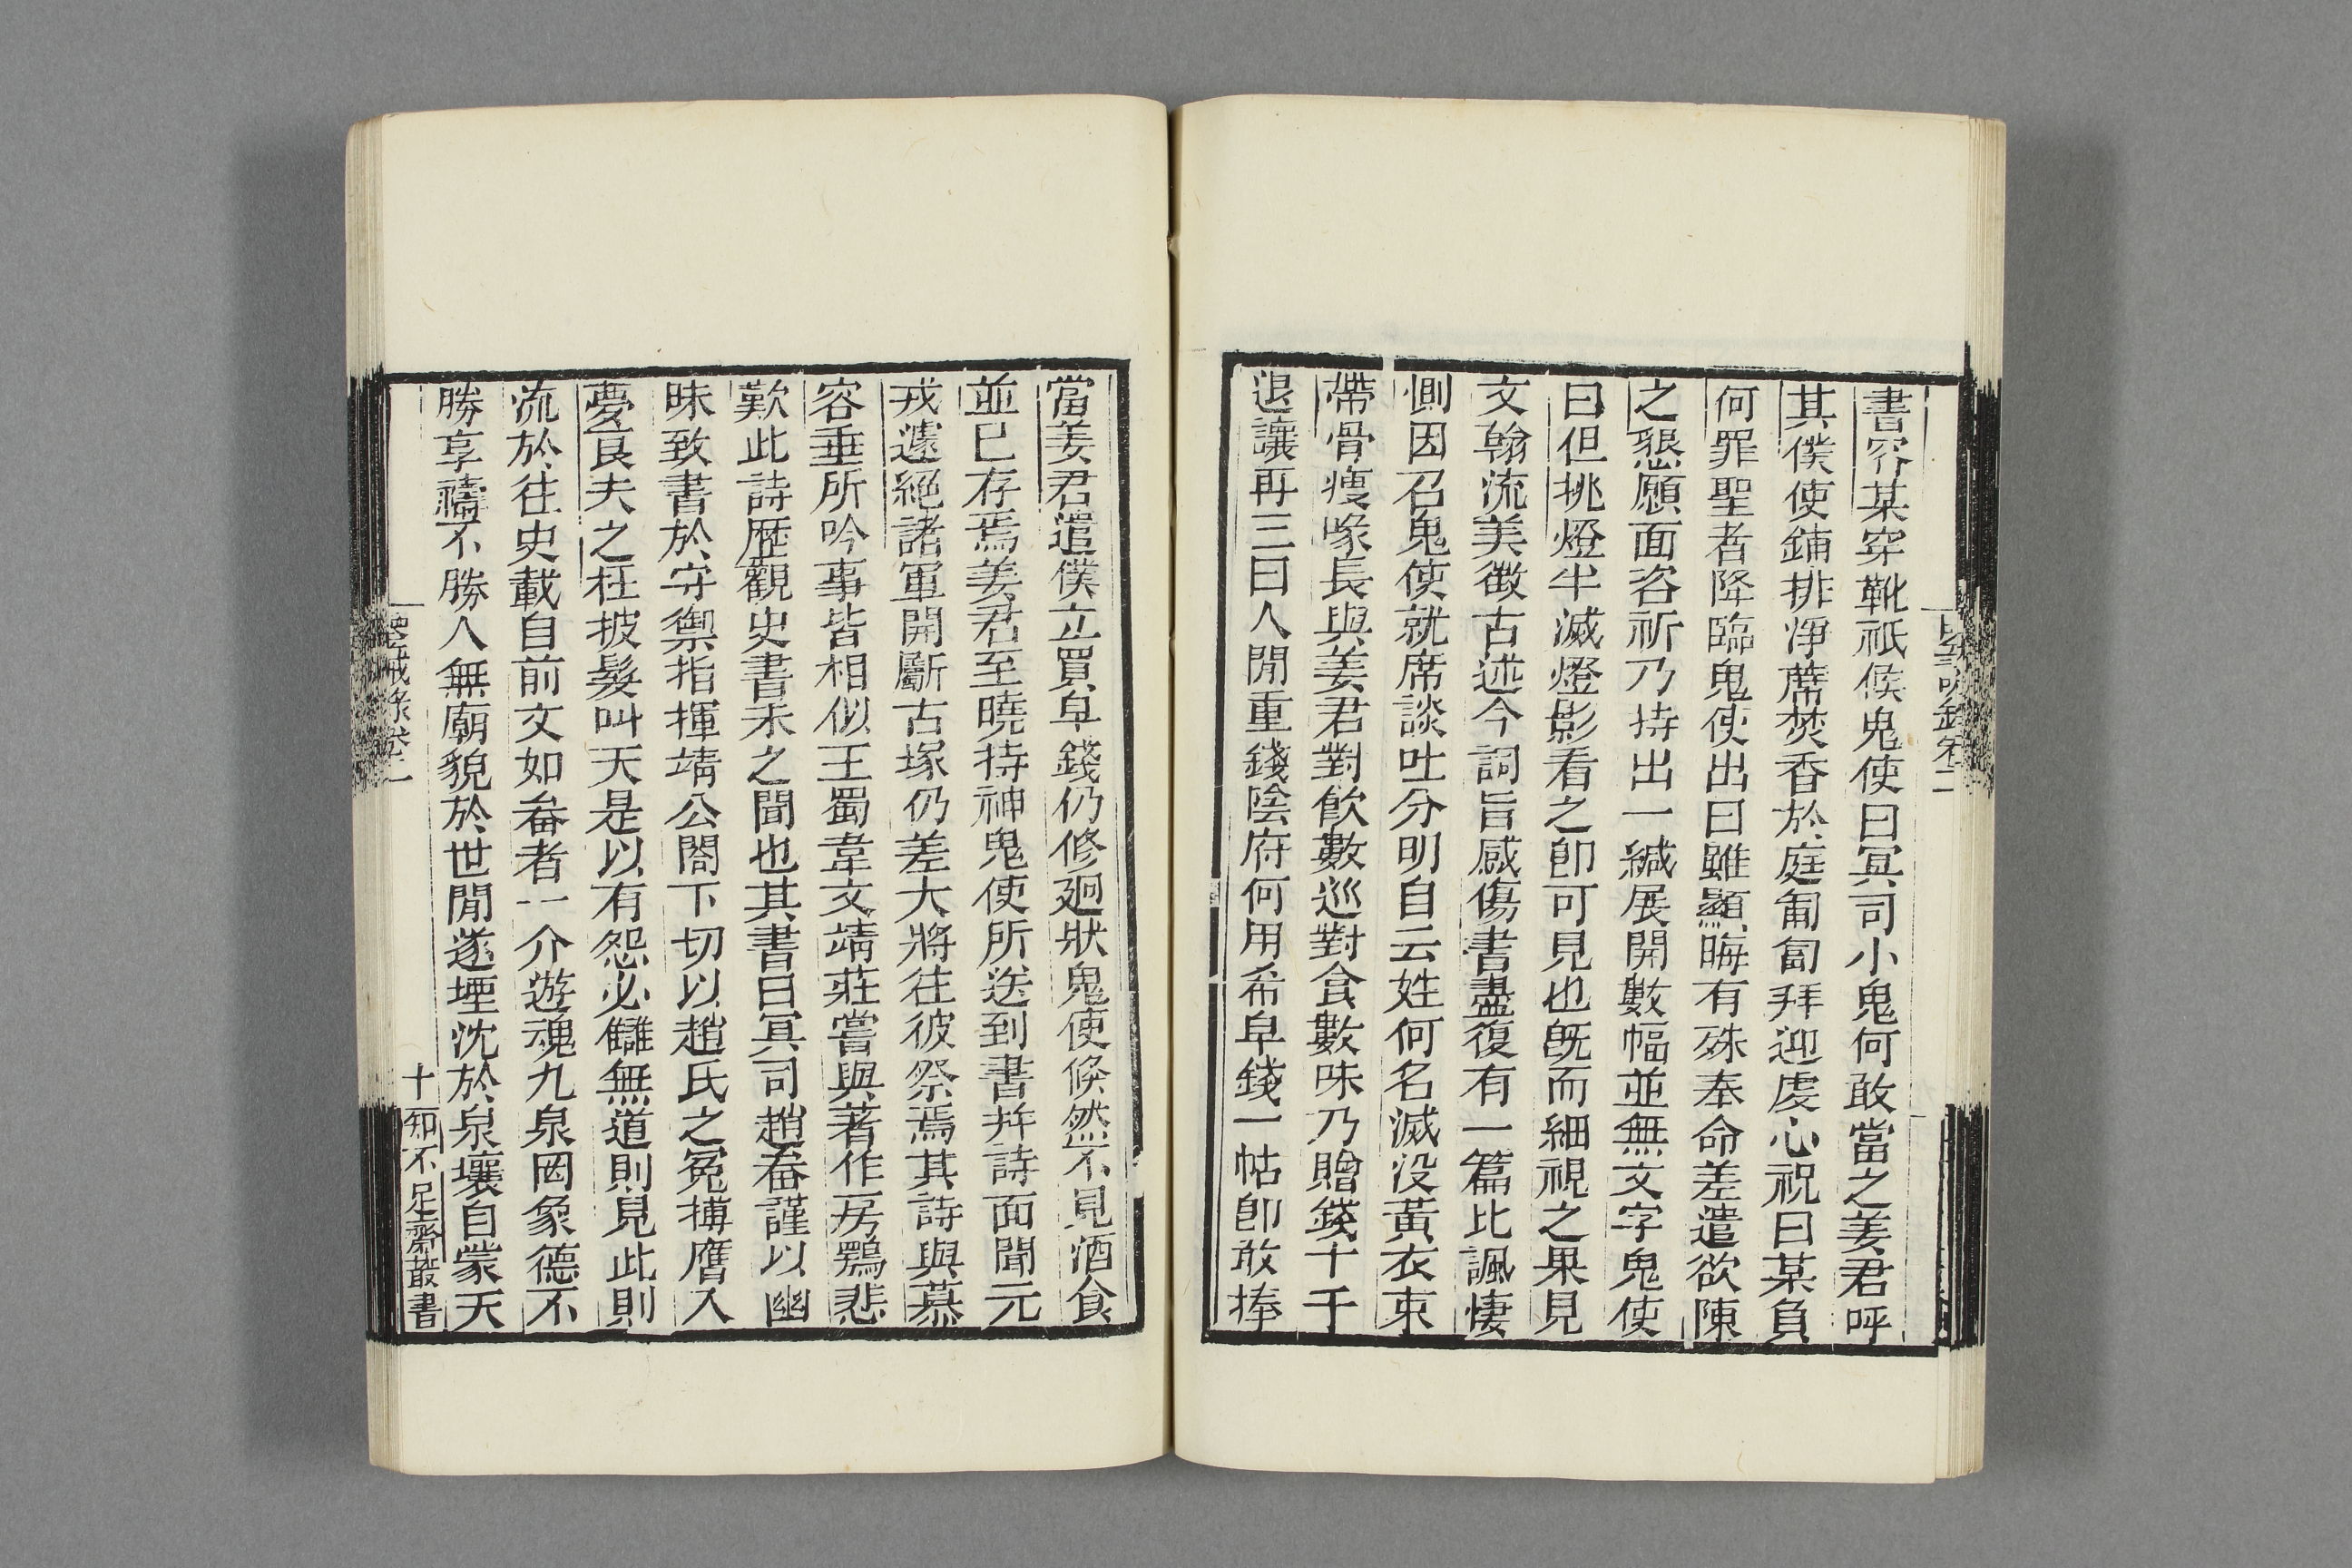 書畧某穿靴祗候鬼使曰冥司小鬼何敢當之姜君呼
其僕使鋪排淨蓆焚香於庭匍匐拜迎虔心祝曰某負
何罪聖者降臨鬼使出曰雖顯晦有殊奉命差遣欲陳
之懇願面咨祈乃持出一緘展開數幅並無文字鬼使
曰但挑燈半滅燈影看之卽可見也旣而細視之果見
文翰流美徵古述今詞旨感傷書盡復有一篇比諷悽
惻因召鬼使就席談吐分明自云姓何名滅没黃衣束
帶骨瘦喙長與姜君對飮數巡對食數味乃贈錢十千
退讓再三曰人閒重錢陰府何用希皁錢一帖卽敢捧
當姜君遣僕立買皁錢仍修廻狀鬼使倏然不見酒食
並已存焉姜君至曉持神鬼使所送到書幷詩面聞元
戎遽絕諸軍開斸古塚仍差大將往彼祭焉其詩與慕
容垂所吟事皆相似王蜀韋文靖莊嘗與著作房鶚悲
歎此詩歷觀史書未之聞也其書曰冥司趙畚謹以幽
昧致書於守禦指揮靖公閤下切以趙氏之冤摶膺入
夢良夫之枉披髮叫天是以有怨必讎無道則見此則
流於往史載自前文如畚者一介遊魂九泉罔象德不
勝享禱不勝人無廟貌於世閒遂堙沈於泉壤自蒙天
鑒誡錄卷二
十
知不足齋叢書